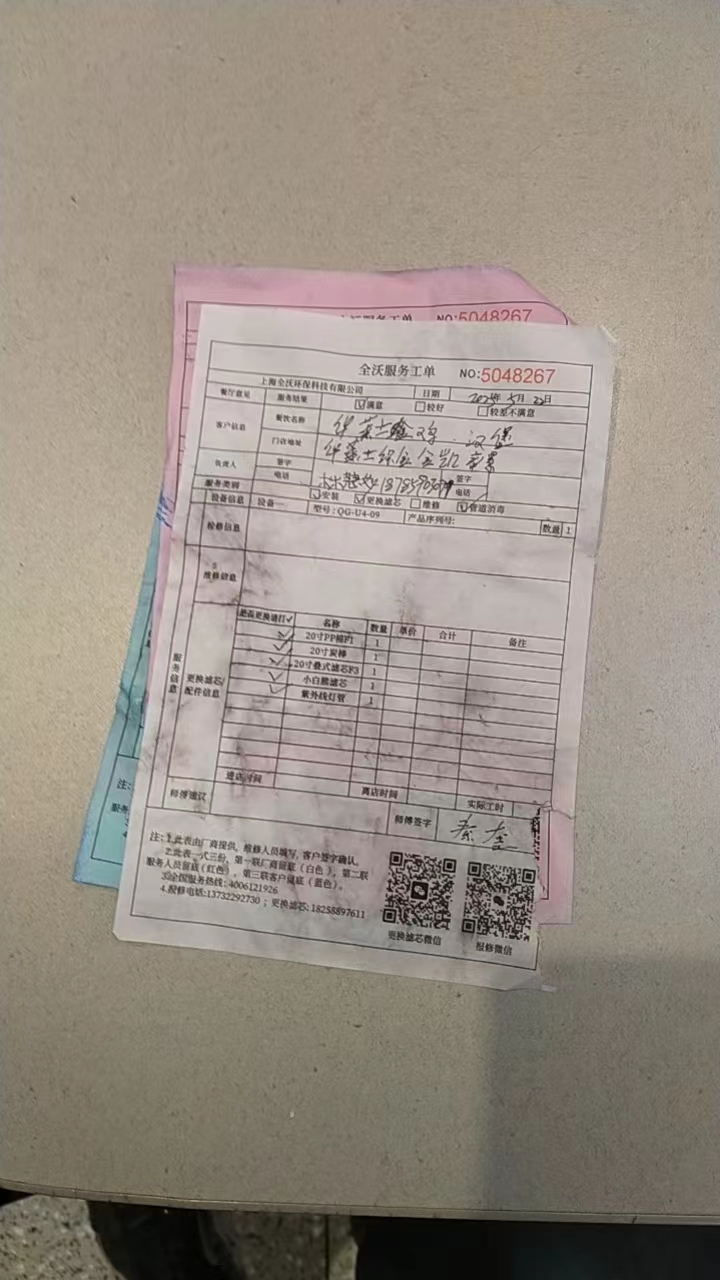 NO:5048267
全沃服务工单 NO:5048267
上海全沃环保科技有限公司 日期 5月22日
餐厅意见 服务结果 ☑满意 □较好 □较差不满意
客户信息 餐饮名称 华莱士 汉堡
门店地址 华莱士
负责人 签字 签字
电话 电话
服务类别 ☑安装 ☑更换滤芯 □维修 ☑管道消毒
设备信息 设备一 型号: QG-U4-09 产品序列号: 数量 1
检修信息
维修信息
服务信息
更换滤芯/配件信息
是否更换请打✓ 名称 数量 单价 合计 备注
✓ 20寸PP棉F1 1
✓ 20寸炭棒 1
✓ 20寸叠式滤芯F3 1
✓ 小白熊滤芯 1
✓ 紫外线灯管 1
进店时间 离店时间 实际工时
师傅建议 师傅签字 秦
注: 1.此表由厂商提供, 维修人员填写, 客户签字确认。
2.此表一式三份, 第一联厂商留底(白色), 第二联
服务人员留底(红色), 第三联客户留底(蓝色)。
3.全国服务热线: 4006121926
4.报修电话:13732292730 ; 更换滤芯: 18258897611
更换滤芯微信 报修微信
注: